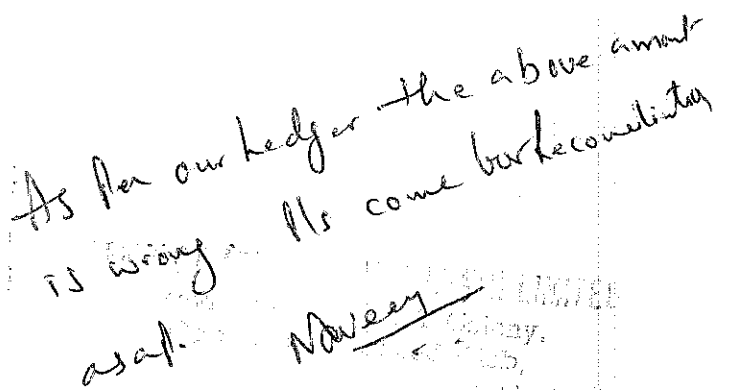 As Per our Ledger the above amount
is wrong. Pls come for Reconciliation
asap. Naveen
LIMITED